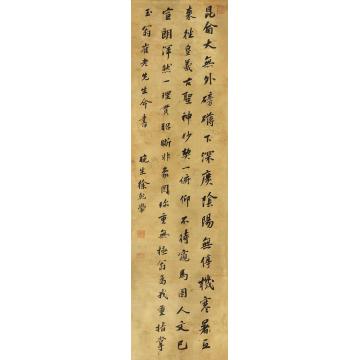 昆侖大無外磅礴下深廣陰陽無停機寒暑互
来往皇羲古聖神妙契一俯仰不待窺馬圖人文已
宣朗渾然一理貫昭晰非象罔珍重無極翁為我重指掌
玉翁崔老先生命書
晚生徐乾學